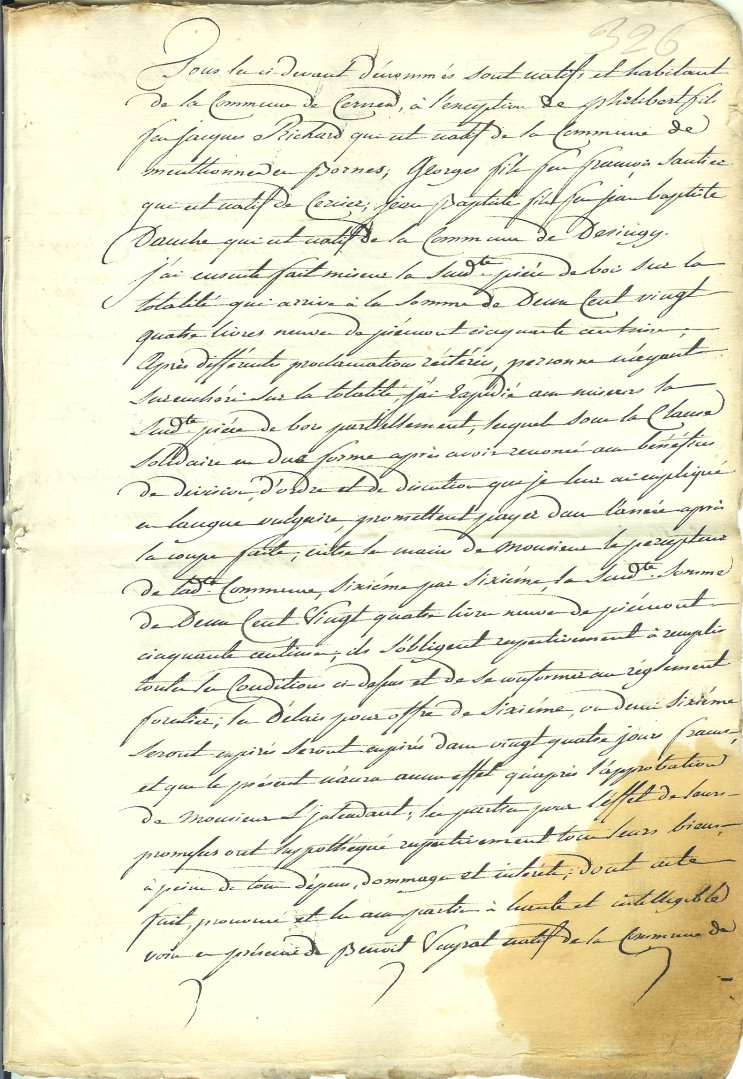 326
Tous les ci devant dénommés sont natifs et habitant
de la Commune de Cernex, à l'exception de philibert fils
feu Jacques Richard qui est natif de la Commune de
menthonnex en Bornes; Georges fils feu françois Sautier
qui est natif de Cercier; jean Baptiste fils feu jean baptiste
qui est natif de la Commune de Desingy.
j'ai ensuite fait miser la Sudte pièce de bois sur la
totalité qui arrive à la Somme de Deux Cent vingt
quatre livres neuves de piémont cinquante centimes;
Après différentes proclamations réitérées, personne n'ayant
surenchéri sur la totalité, j'ai expédié aux miseurs la
Sudte pièce de bois partiellement, lesquels sous la Clause
Solidaire en due forme après avoir renoncé aux bénéfices
de division, d'ordre et de discution que je leur ai expliqué
en langue vulgaire, promettent payer dans l'année après
la coupe faite, entre les mains de Monsieur le percepteur
de ladte Commune, sixiéme par sixiéme, la Sudte Somme
de Deux Cent Vingt quatre livres neuves de piémont
cinquante centimes; ils s'obligent respectivement à remplir
toutes les Conditions ci dessus et de se conformer au réglement
forestier; les Délais pour offre de sixiéme, ou demi sixiéme
seront expirés seront expirés dans vingt quatre jours francs,
et que le présent n'aura aucun effet qu'après l'approbation
de Monsieur L'jntendant; les parties pour l'effet de leurs
promesses ont hypothéqué respectivement tous leurs biens,
à peine de tous dépens, dommages et intérêts; dont acte
fait, prononcé et lu aux parties à haute et intelligible
voix en présence de Benoit Vuyrat natif de la Commune de